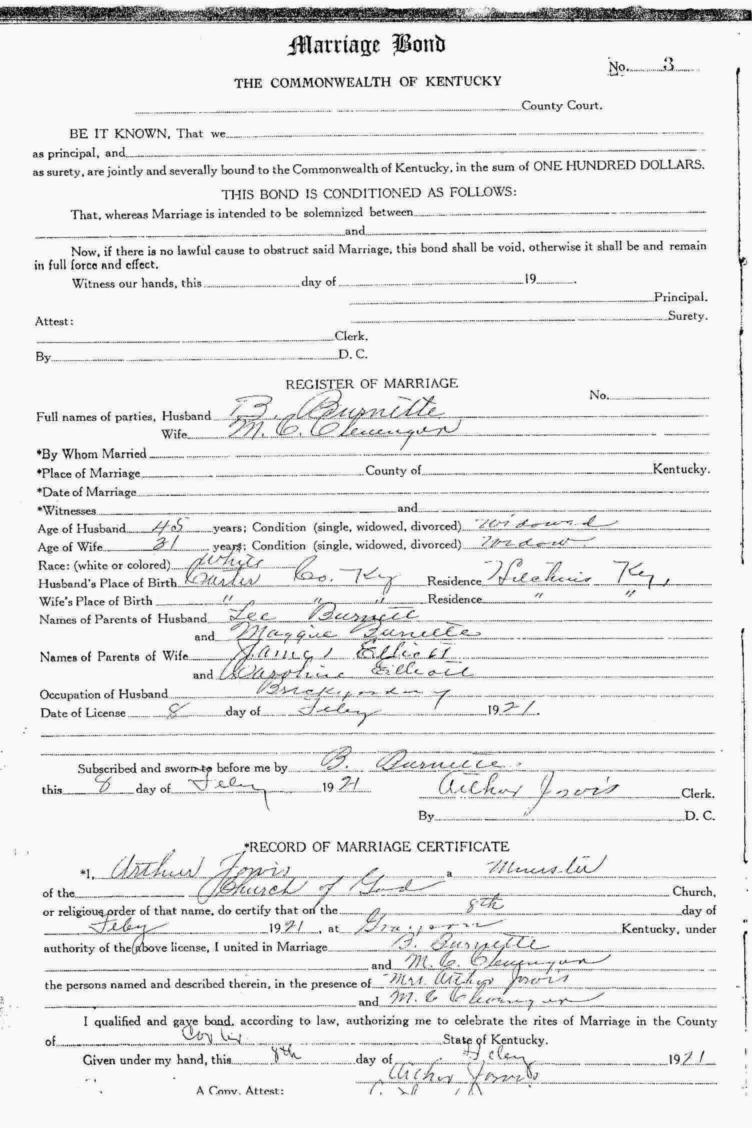 Marriage Bond
No. 3
THE COMMONWEALTH OF KENTUCKY
County Court.
BE IT KNOWN, That we
as principal, and
as surety, are jointly and severally bound to the Commonwealth of Kentucky, in the sum of ONE HUNDRED DOLLARS.
THIS BOND IS CONDITIONED AS FOLLOWS:
That, whereas Marriage is intended to be solemnized between
and
Now, if there is no lawful cause to obstruct said Marriage, this bond shall be void, otherwise it shall be and remain
in full force and effect.
Witness our hands, this day of 19 .
Principal.
Attest: Surety.
Clerk.
By D. C.
REGISTER OF MARRIAGE
No.
Full names of parties, Husband B. Burnette
Wife M. C. Clevenger
*By Whom Married
*Place of Marriage County of Kentucky.
*Date of Marriage
*Witnesses and
Age of Husband 45 years; Condition (single, widowed, divorced) Widowed
Age of Wife 31 years; Condition (single, widowed, divorced) Widow
Race: (white or colored) White
Husband's Place of Birth Carter Co. Ky Residence Hitchins Ky,
Wife's Place of Birth " " " Residence " "
Names of Parents of Husband Lee Burnett
and Maggie Burnette
Names of Parents of Wife James Elliott
and Caroline Elliott
Occupation of Husband
Date of License 8 day of Feby 1921.
Subscribed and sworn to before me by B. Burnette.
this 8 day of Feby 1921 Clerk.
By D. C.
*RECORD OF MARRIAGE CERTIFICATE
*I, Arthur a Minister
of the Church of God Church,
or religious order of that name, do certify that on the 8th day of
Feby 1921, at Grayson Kentucky, under
authority of the above license, I united in Marriage B. Burnette
and M. C. Clevenger
the persons named and described therein, in the presence of Mrs. Arthur
and M. C Clevenger
I qualified and gave bond, according to law, authorizing me to celebrate the rites of Marriage in the County
of Carter State of Kentucky.
Given under my hand, this 8th day of Feby 1921
A Copy, Attest: